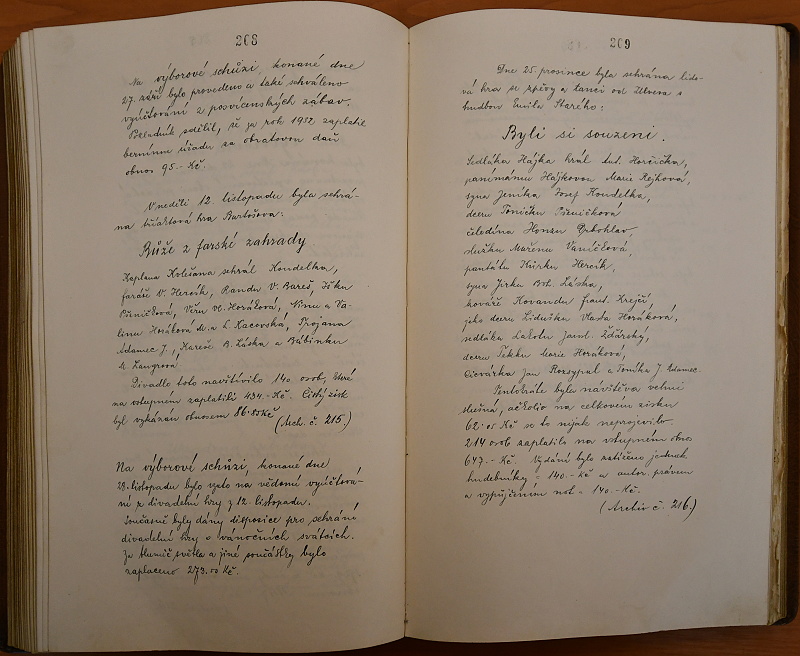 208
Na výborové schůzi, konané dne
27. září bylo provedeno a také schváleno
vyúčtování z posvícenských zábav.
Pokladník sdělil, že za rok 1932 zaplatil
bernímu úřadu za obratovou daň
obnos 95.- Kč.
V neděli 12. listopadu byla sehrá-
na tříaktová hra Bartošova:
Růže z farské zahrady
Kaplana Kolešana sehrál Koudelka,
faráře V. Hercík, Randu V. Bareš, Jitku
Pšeničková, Věru Vl. Horáková, Ninu a Va-
linu Horáková M. a L. Kacovská, Trojana
Adamec J., Kareše B. Láska a Bábinku
M. Langrová
Divadlo toto navštívilo 140 osob, které
na vstupném zaplatili 434.- Kč. Čistý zisk
byl vykázán obnosem 86.85 Kč
(Arch. č. 215.)
Na výborové schůzi, konané dne
28. listopadu bylo vzato na vědomí vyúčtová-
ní z divadelní hry z 12. listopadu.
Současně byly dány disposice pro sehrání
divadelní hry o vánočních svátcích.
Za tlumič světla a jiné součástky bylo
zaplaceno 273.00 Kč.
209
Dne 25. prosince byla sehrána lido-
vá hra se zpěvy a tanci od s
hudbou Emila Starého:
Byli si souzeni.
Sedláka Hájka hrál Ant. Horčička,
panímámu Hájkovou Marie Rejhová,
syna Jeníka Josef Koudelka,
dceru Toničku Pšeničková
čeledína Honzu Drbohlav,
služku Mařenu Vaníčlová,
pantátu Kůrku Hercík,
syna Jirku Boh. Láska,
kováře Kovandu Frant. Krejčí,
jeho dceru Lidušku Vlasta Horáková,
sedláka Lakotu Jarosl. Žďárský,
dceru Pekku Marie Horáková,
Cievárka Jan Rozsypal a Toníka J. Adamec.
Tentokráte byla návštěva velmi
slušná, ačkoliv na celkovém zisku
62.05 Kč se to nijak neprojevilo.
214 osob zaplatilo na vstupném obnos
647.- Kč. Vydání bylo zatíženo jednak
hudebníky = 140.- Kč a autor. právem
a vypůjčením not = 140.- Kč.
(Archiv č. 216.)